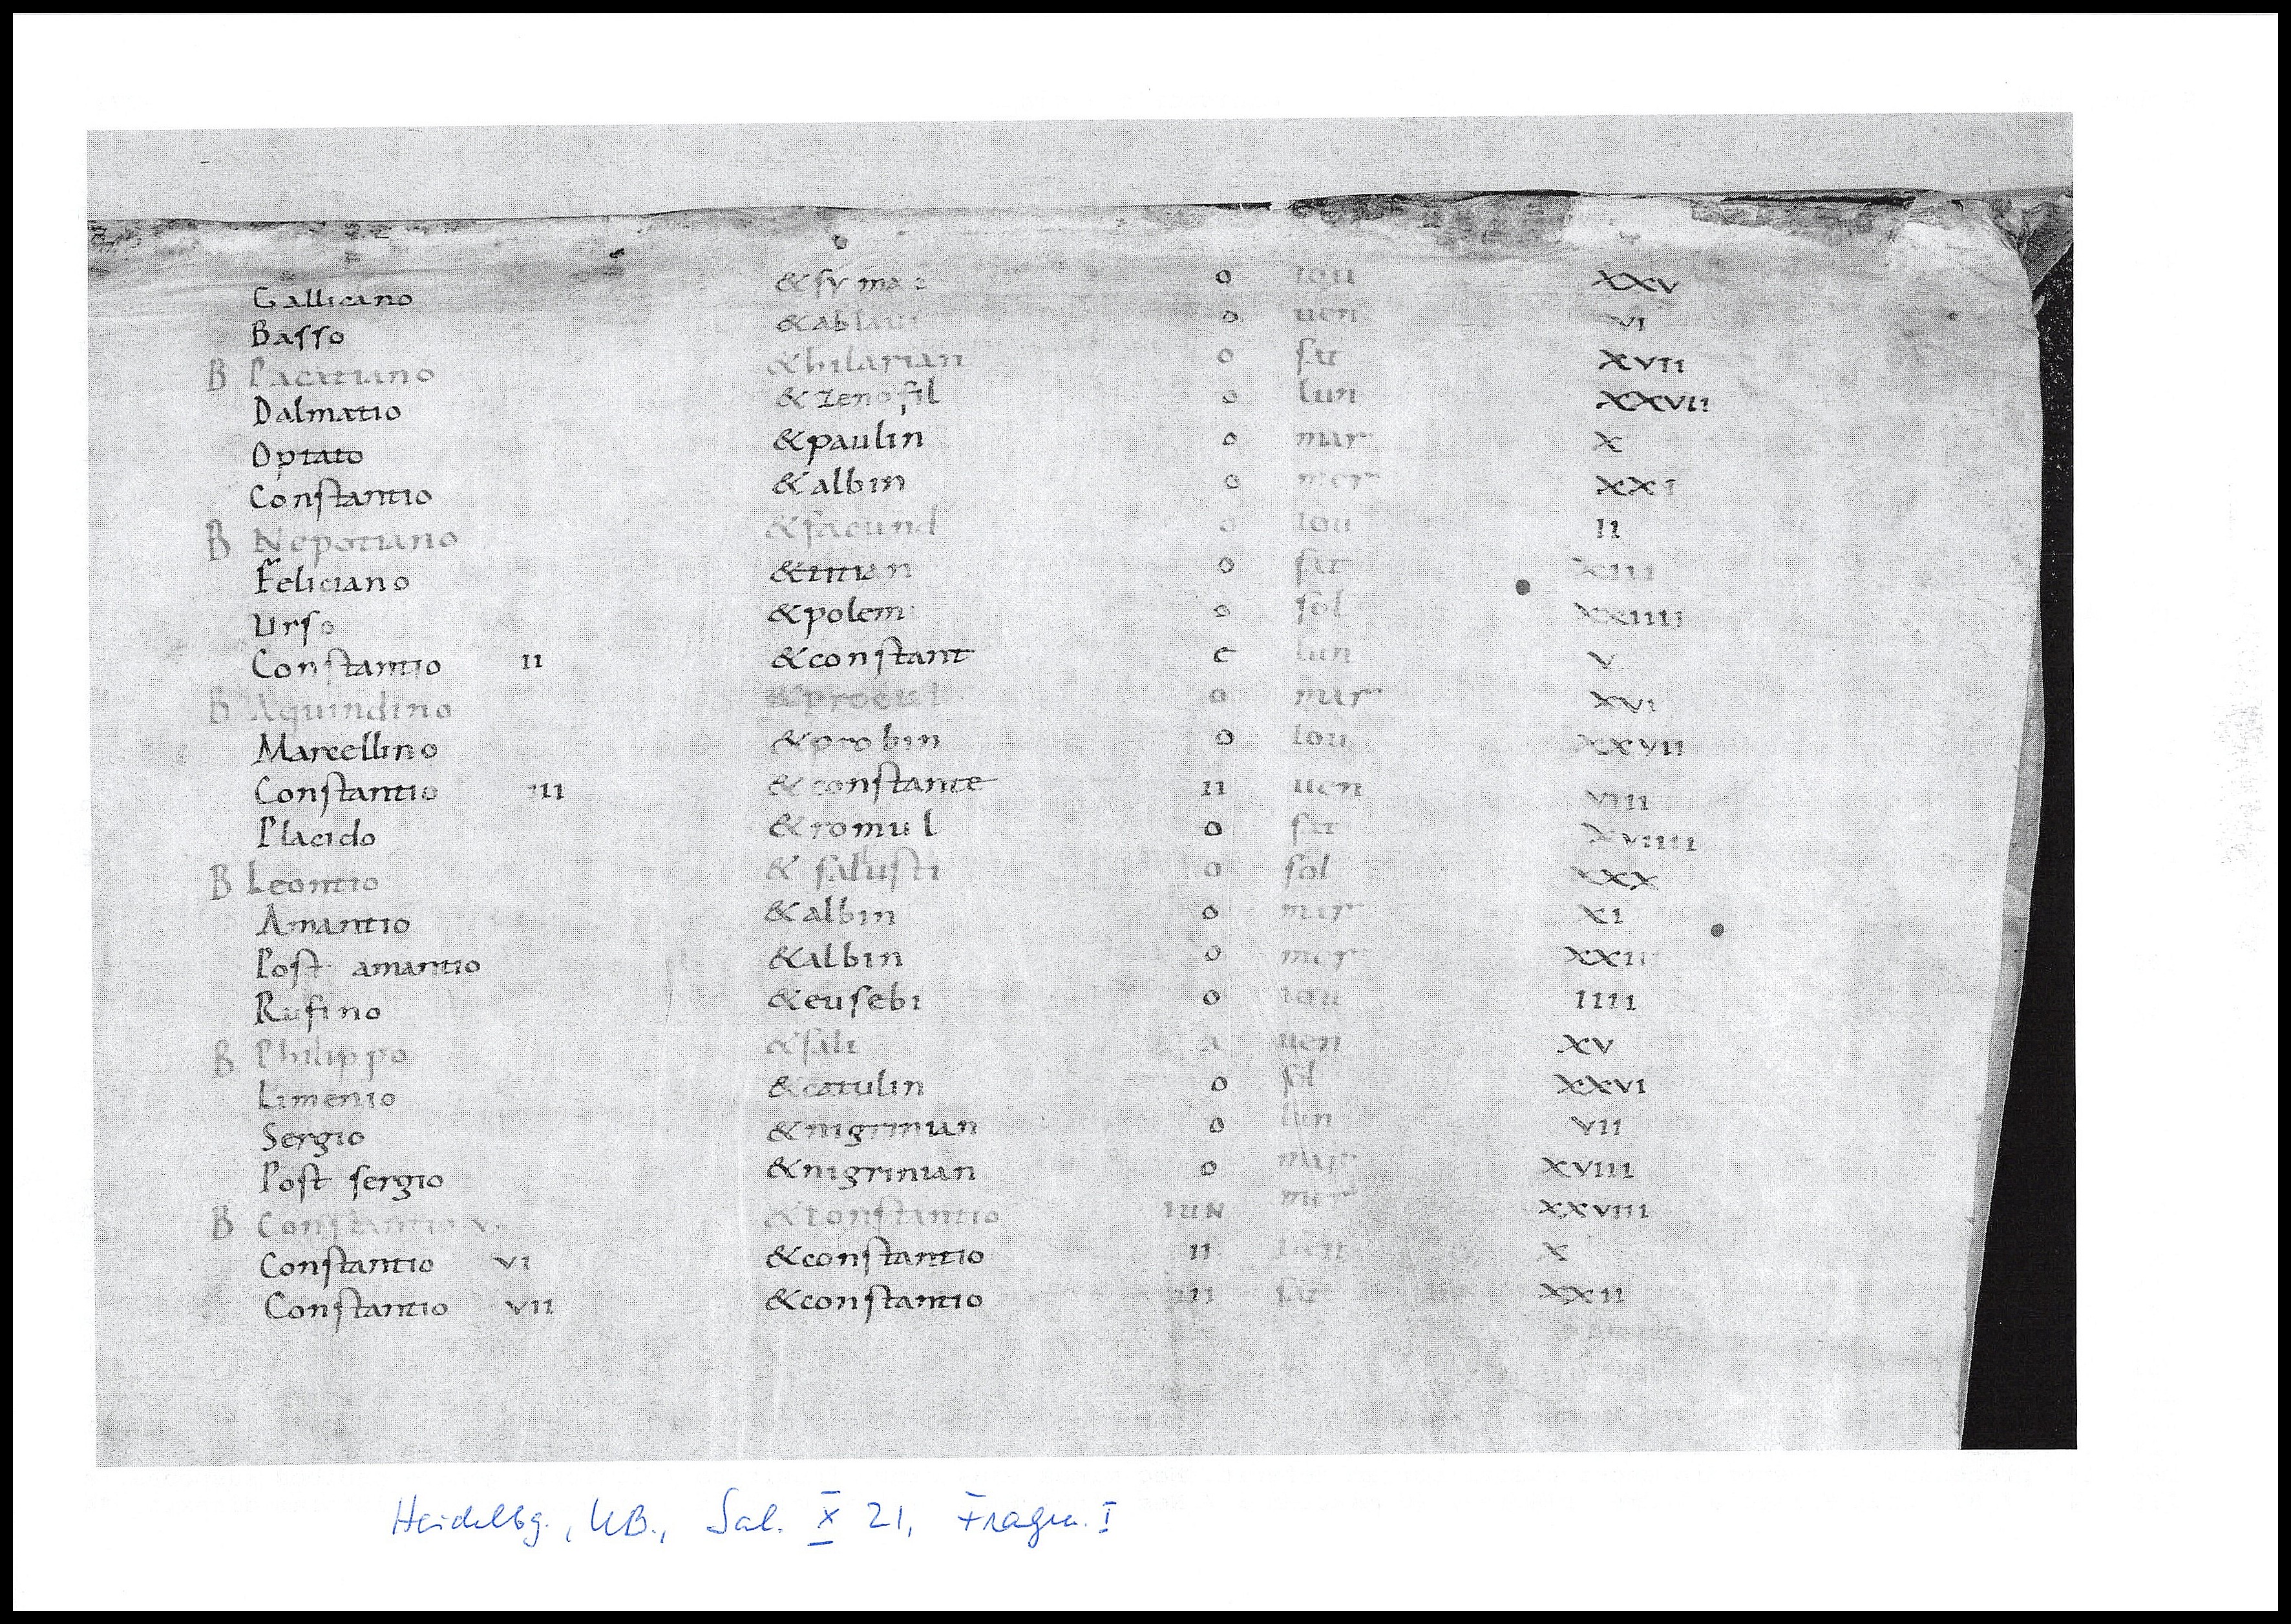 Gallicano & syma o iou XXV
Basso & ablaui o uen VI
B Pacatiano & hilarian o sat XVII
Dalmatio & zenofil o lun XXVII
Optato & paulin o mar X
Constantio & albin o mer XXI
B Nepotiano & facund o iou II
Feliciano & titian o sat XIII
Urso & polem o sol XXIIII
Constantio II & constant c lun V
B Aquindino & procul o mar XVI
Marcellino & probin o iou XXVII
Constantio III & constante II uen VIII
Placido & romul o sat XVIIII
B Leontio & salusti o sol XXX
Amantio & albin o mar XI
Post amantio & albin o mer XXII
Rufino & eusebi o iou IIII
B Philippo & sali uen XV
Limenio & catulin o sol XXVI
Sergio & nigrinian o lun VII
Post sergio & nigrinian o mar XVIII
B Constantio V & constantio IUN mer XXVIII
Constantio VI & constantio II X
Constantio VII & constantio III sat XXII
Heidelbg., UB., Sal. X 21, Fragm. I